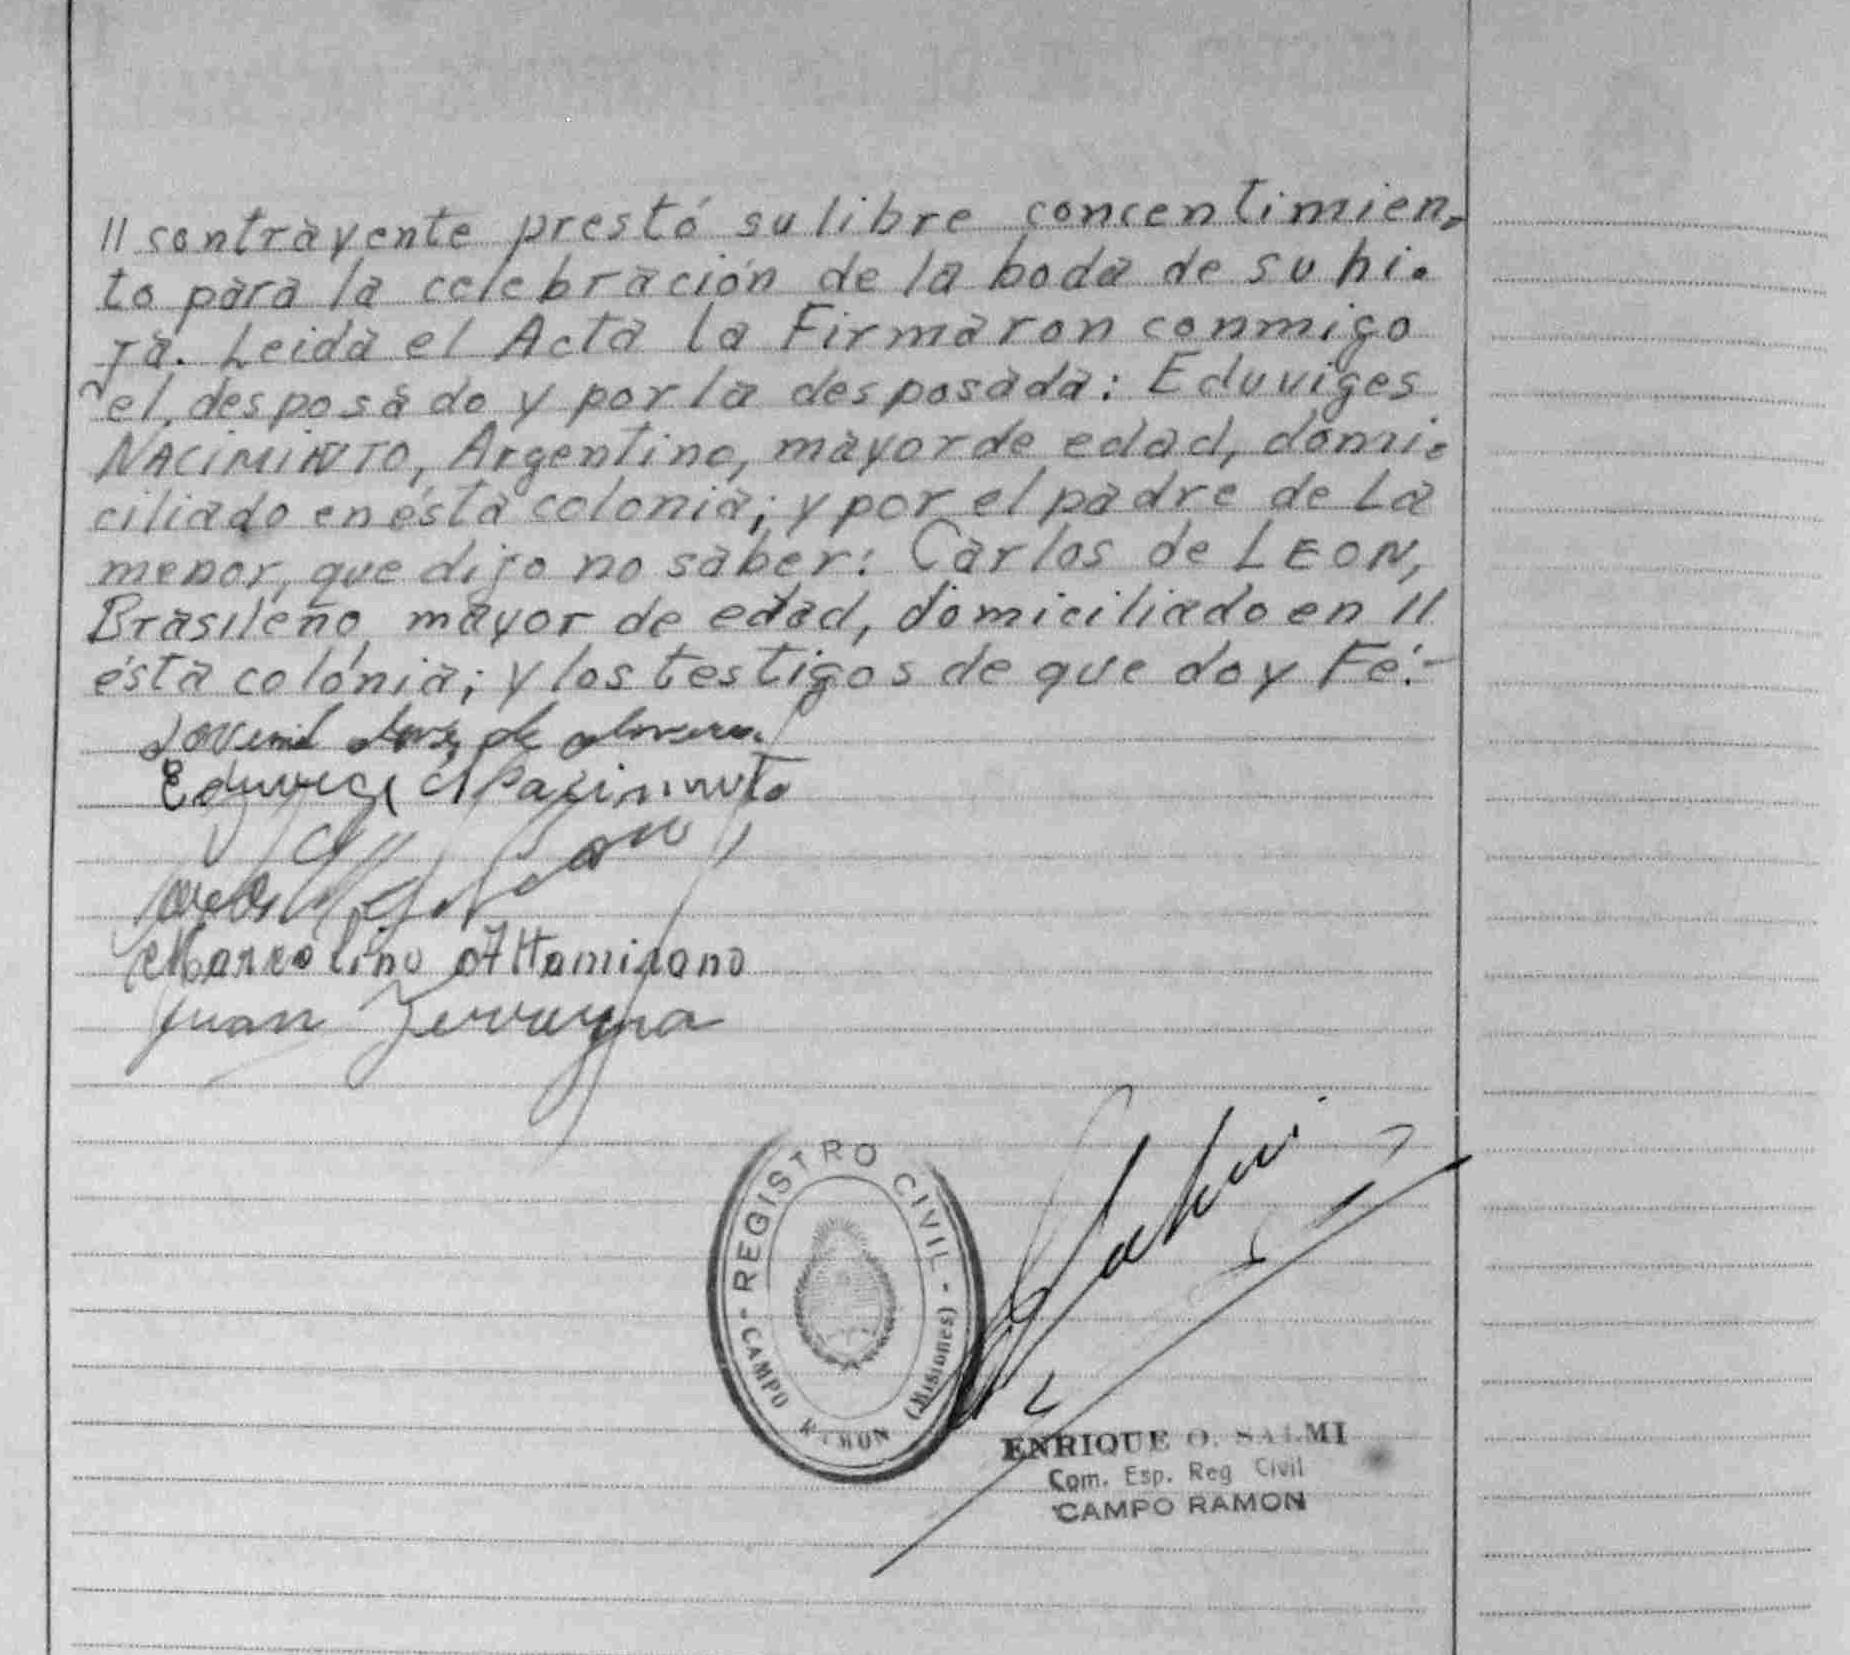 // contrayente prestó su libre concentimien-
to para la celebración de la boda de su hi-
ja. Leida el Acta la Firmaron conmigo
el, desposado y por la desposada: Eduviges
NACIMIENTO, Argentino, mayor de edad, domi-
ciliado en ésta colonia; y por el padre de La
menor, que dijo no saber: Carlos de LEON,
Brasileño, mayor de edad, domiciliado en //
ésta colónia; y los testigos de que doy Fé.-
Marcolino Altamirano
Juan
REGISTRO CIVIL
- CAMPO RAMON (Misiones) -
ENRIQUE O. SALMI
Com. Esp. Reg Civil
CAMPO RAMON